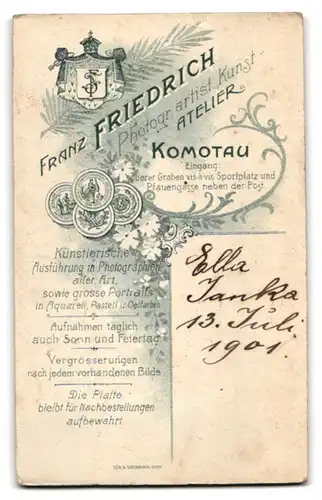 FRANZ FRIEDRICH
Photogr. artist. Kunst-
ATELIER
KOMOTAU
Eingang:
oberer Graben vis-à-vis Sportplatz und
Pfauengasse neben der Post.
Künstlerische
Ausführung in Photographien
aller Art,
sowie grosse Portraits
in Aquarell, Pastell u. Oelfarben
Aufnahmen täglich
auch Sonn und Feiertag
Vergrösserungen
nach jedem vorhandenen Bilde
Die Platte
bleibt für Nachbestellungen
aufbewahrt
Ella
Janka
13. Juli
1901.